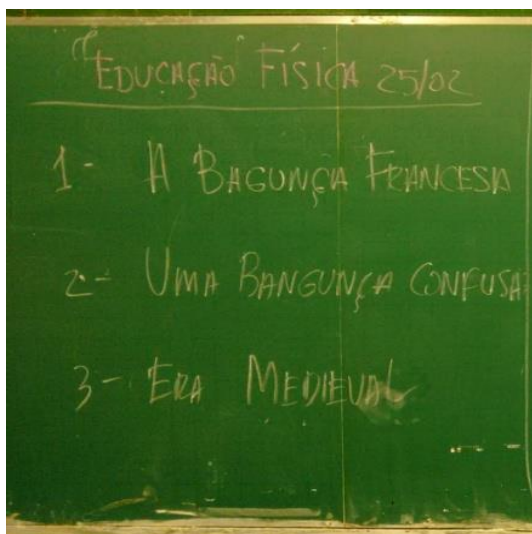 EDUCAÇÃO FÍSICA 25/02
1- A BAGUNÇA FRANCESA
2- UMA BANGUNÇA CONFUSA
3- ERA MEDIEVAL